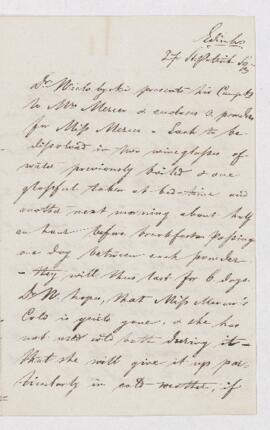 Edinb.
27 Septbr 59
Dr Wielobycki presents his Compts
to Mrs Mercer & encloses 3 powders
for Miss Mercer - Each to be
dissolved in two wineglasses of
water previously boiled & one
glassful taken at bed-time and
another next morning about half
an hour before breakfast. Passing
one day between each powder
- they will thus last for 6 days.
Dr W. hopes, that Miss Mercer's
Cold is quite gone, & she has
not used cold bath during it -
that she will give it up par-
ticularly in cold weather, if